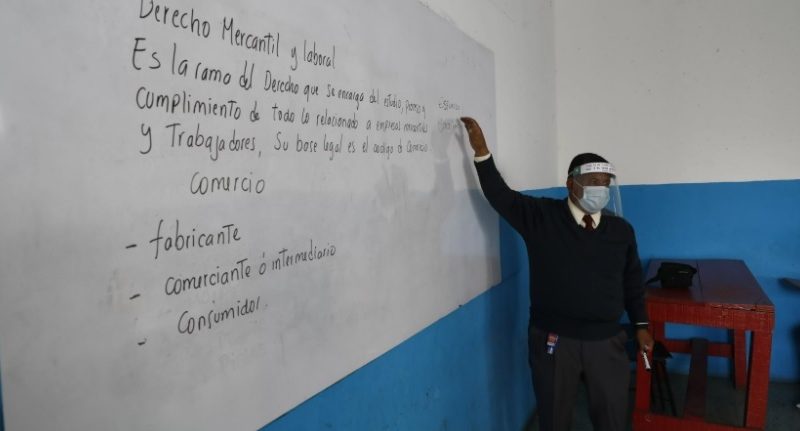 Derecho Mercantil y laboral
Es la rama del Derecho que se encarga del estudio, proceso y
cumplimiento de todo lo relacionado a empresas mercantiles
y Trabajadores, Su base legal es el codigo de Comercio
Comercio
- fabricante
- comerciante ó intermediario
- Consumidor.